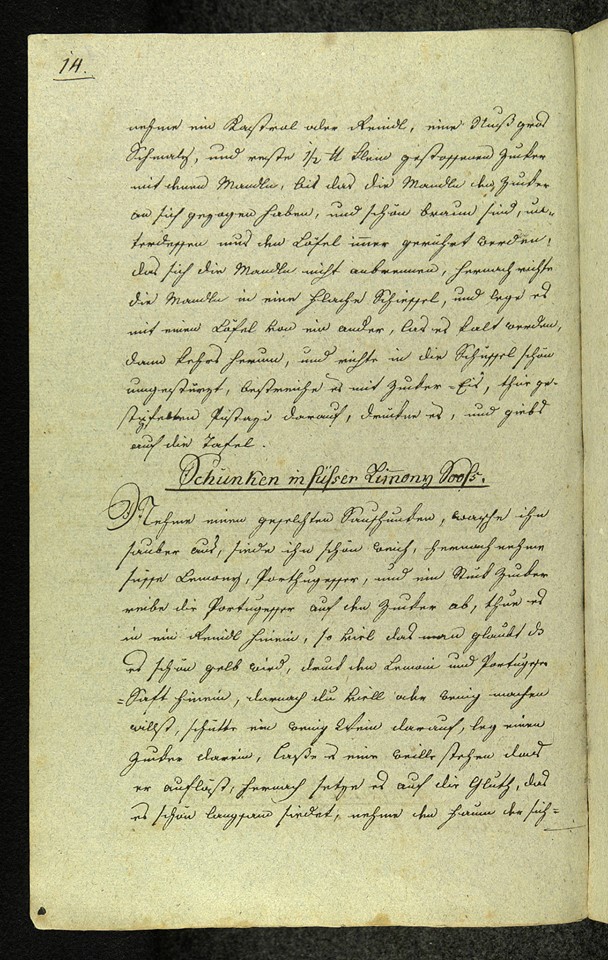 14.
nehme ein Kastrol oder Reindl, eine Nuß gros
Schmalz, und reste 1/2 ℔ klein gestossenen Zucker
mit denen Mandln, bis das die Mandln den Zucker
an sich gezogen haben, und schön braun sind, un=
terdessen mus den Löfel imer gerührt werden,
das sich die Mandln nicht anbrennen, hernach richte
die Mandln in eine flache Schissel, und lege es
mit einen Löfel von ein ander, las es kalt werden,
dann kehrs herum, und richte in die Schüssel schön
umgestürzt, bestreiche es mit Zucker=Eis, thue ge=
stifelten Pistazi darauf, drückne es, und giebs
auf die Tafel.
Schunken in süsser Limony Sooß.
Nehme einen geselchten Sauschunken, wasche ihn
sauber aus, siede ihn schön weich, hernach nehme
süsse Lemony, Porthugesser, und ein Stük Zucker
reibe die Portugesser auf den Zucker ab, thue es
in ein Reindl hinein, so viel das man glaubt das
es schön gelb wird, druk den Lemoni und Portugesser
=Saft hinein, darnach du viell oder wenig machen
willst, schütte ein wenig Wein darauf, leg einen
Zucker darein, lasse es eine weille stehen das
er auflöst, hernach setze es auf die Gluth, das
es schön langsam siedet, nehme den Faum der sich=